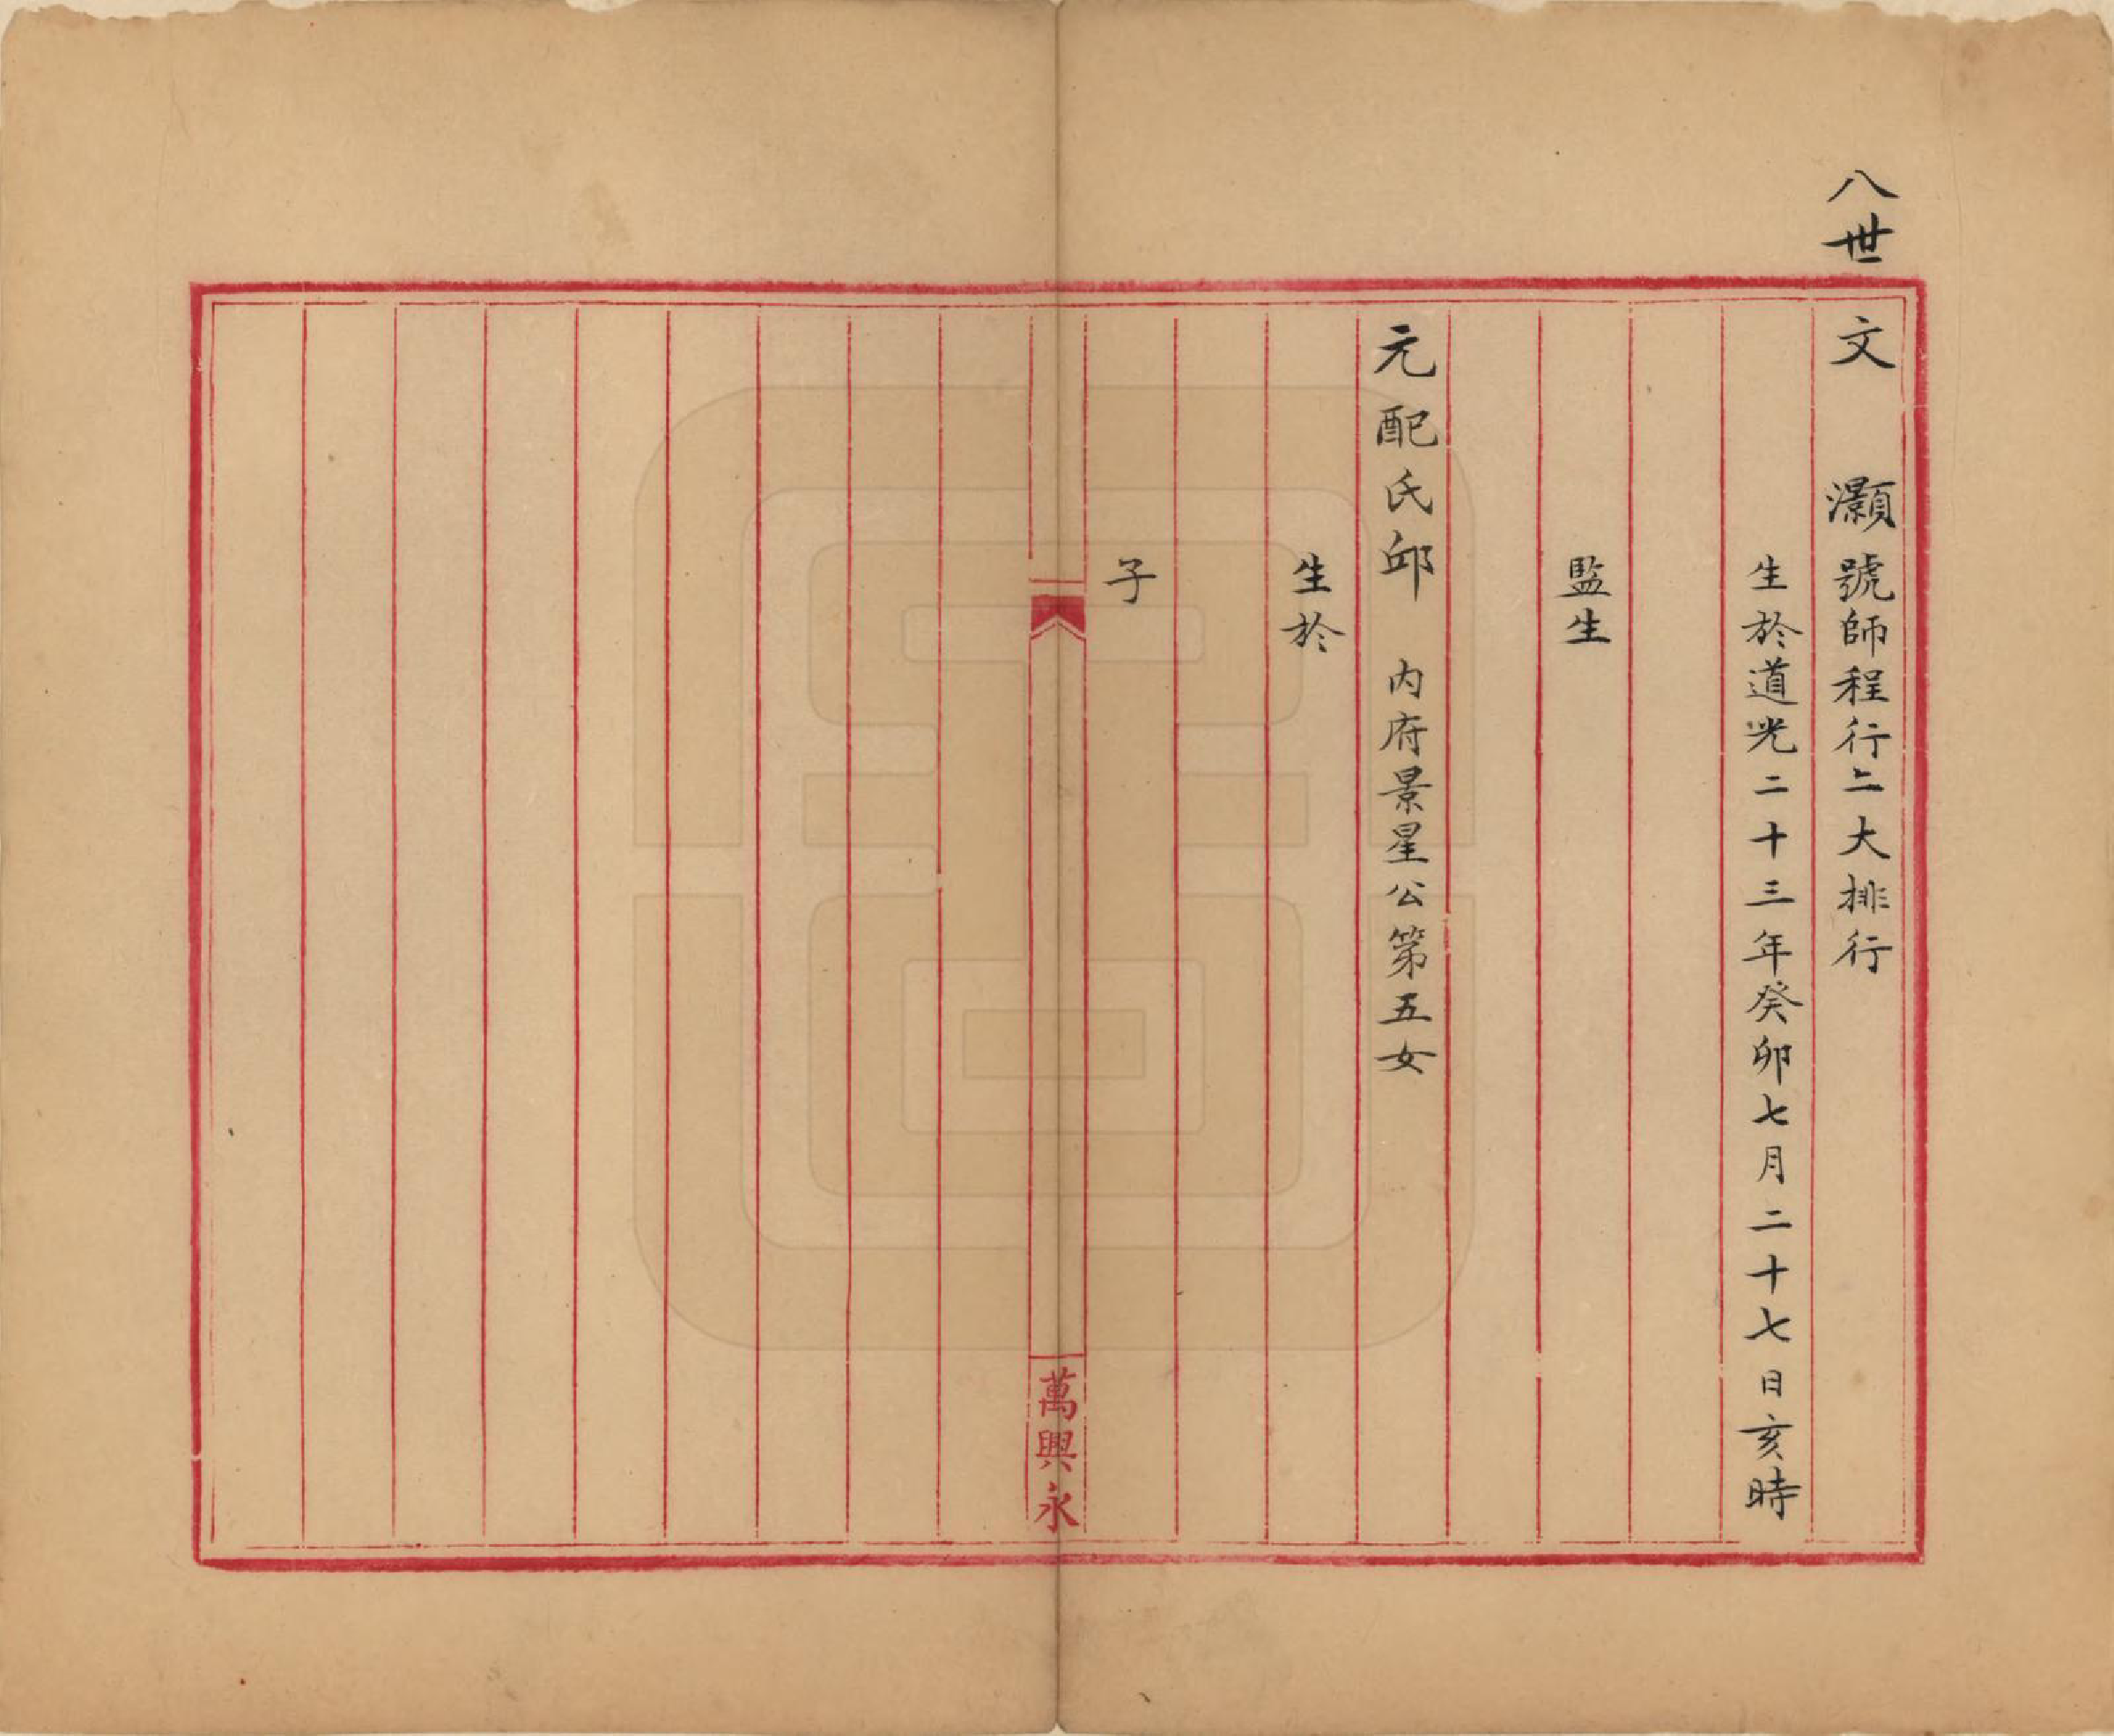 八世
文 灝號師程行二大排行
生於道光二十三年癸卯七月二十七日亥時
監生
元配氏邱 內府景星公第五女
生於
子
萬興永